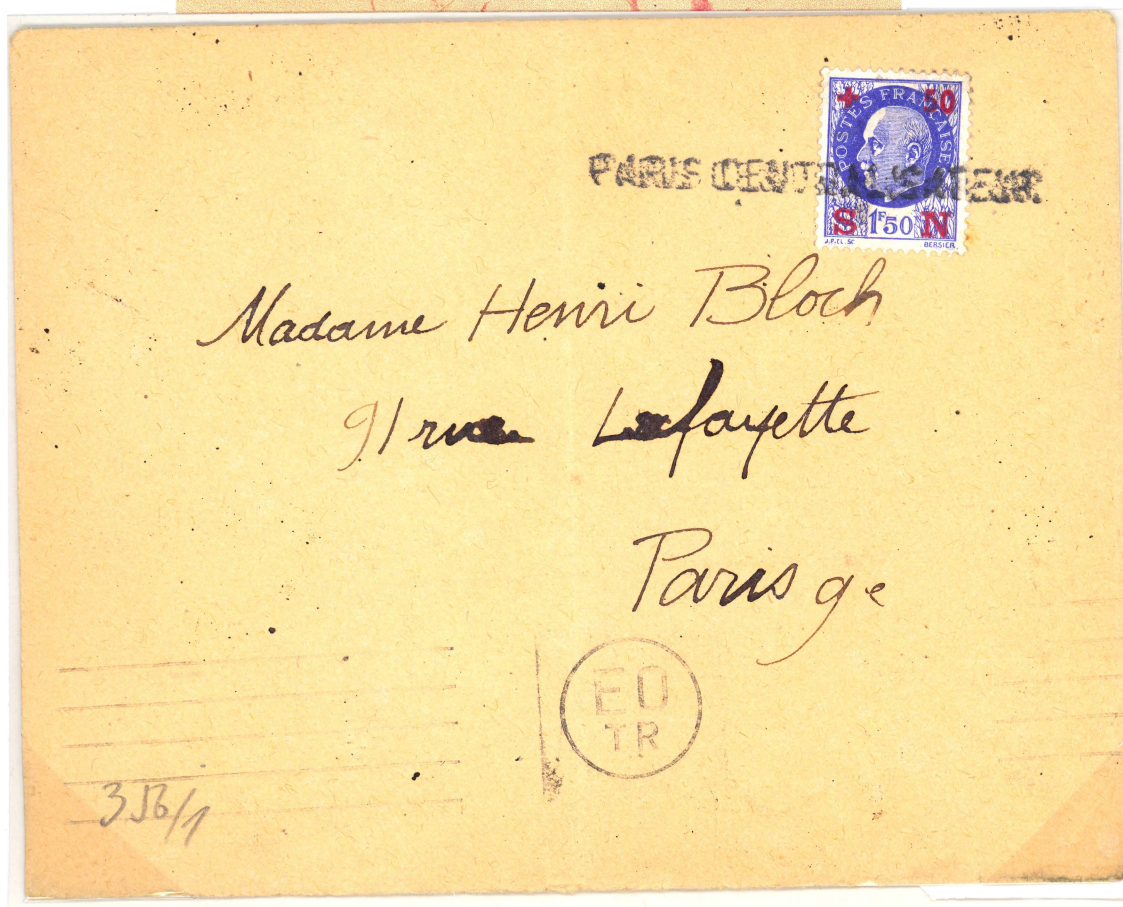 POSTES FRANÇAISES
+ 50
S 1F50 N
J.P.CL.SC BERSIER
PARIS CENTRALISATEUR
Madame Henri Bloch
91 rue Lafayette
Paris 9e
EO
TR